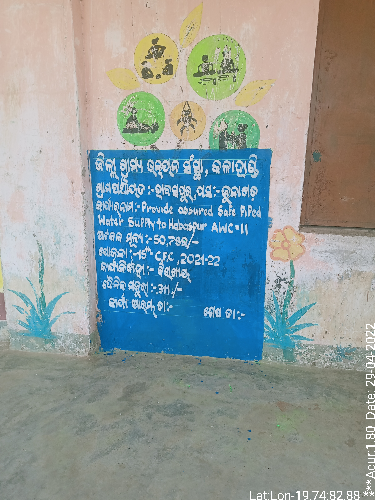 ଜିଲ୍ଲା ଗ୍ରାମ୍ୟ ଉନ୍ନୟନ ସଂସ୍ଥା, କଳାହାଣ୍ଡି
ଗ୍ରାମପଞ୍ଚାୟତ :- ହାବାସପୁର, ପଂସ :- ଜୁନାଗଡ଼
କାର୍ଯ୍ୟର ନାମ :- Provide assured Safe Piped
Water Supply to Habaspur AWC-11
ଅଟକଳ ମୂଲ୍ୟ :- 50,782/-
ଯୋଜନା :- 15th CFC, 2021-22
:- 311/-
କାର୍ଯ୍ୟ ଆରମ୍ଭ ତା :- ଶେଷ ତା :-
Lat:Lon-19.74:82.88 ***Acur:1.80 Date: 29-04-2022